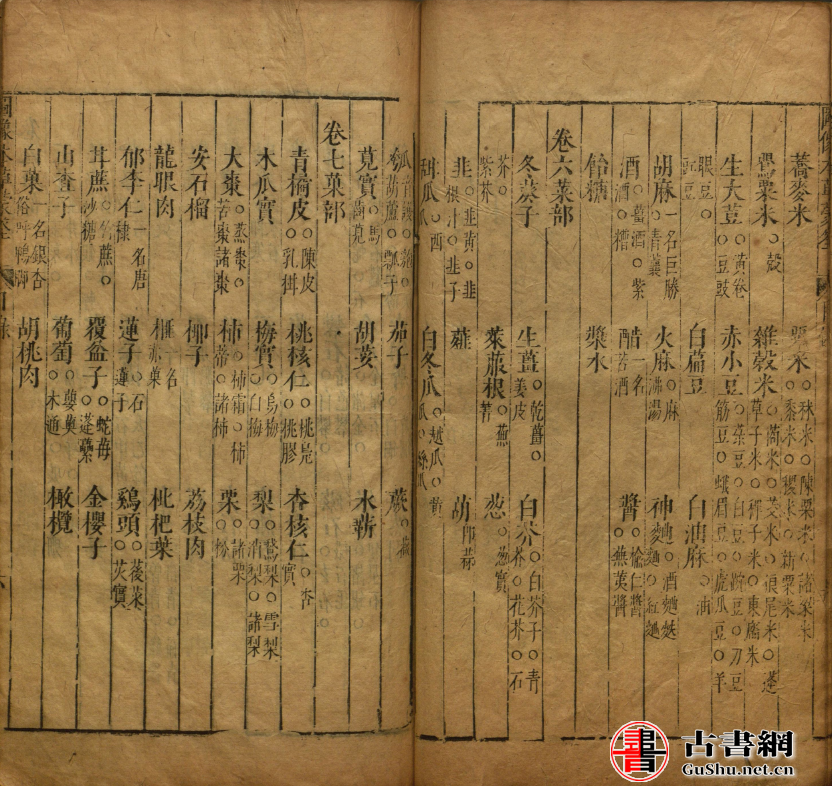 蕎麥米 粟米○秫米○陳粟米○諸粱米○黍米○稷米○新粟米
罌粟米○殼 雜穀米○䔭米○茭米○狼尾米○蓬草子米○稗子米○東廧米
生大荳○黃卷○豆豉 赤小豆○菉豆○白豆○豌豆○刀豆筋豆○蛾眉豆○虎瓜豆○羊
眼豆○豇豆 白扁豆 白油麻○油
胡麻一名巨勝○青蘘 火麻○麻沸湯 神麴○酒麯麩麥麯○紅麯
酒○紫酒○糟 醋一名苦酒 醬○榆仁醬○蕪荑醬
飴糖 漿水
卷六菜部
冬葵子 生薑○乾薑○薑皮 白芥○白芥子○青芥○花芥○石
芥○紫芥 萊菔根○蔓菁 葱○葱實
韭○韭黃○韭根汁○韭子 薤 葫即蒜
甜瓜○西瓜 白冬瓜○越瓜○黃瓜○絲瓜
葫蘆○瓢子 茄子 蕨○薇
莧實○馬齒莧 胡荽 水蘄
卷七菓部
青橘皮○陳皮○乳柑 桃核仁○桃梟○桃膠 杏核仁○杏實
木瓜實 梅實○烏梅○白梅 梨○鵞梨○雪梨○消梨○諸梨
大棗○蒸棗○苦棗諸棗 柿○柿霜○柿蒂○諸柿 栗○諸栗○橡
安石榴 椰子 荔枝肉
龍眼肉 榧一名赤菓 枇杷葉
郁李仁一名唐棣 蓮子○石蓮子 鷄頭○菱菜○芡實
甘蔗○名蔗○沙糖 覆盆子○蛇苺○蓬虆 金櫻子
山查子 葡萄○蘡薁○木通 橄欖
白菓一名銀杏俗呼鴨脚 胡桃肉
古書網
GuShu.net.cn